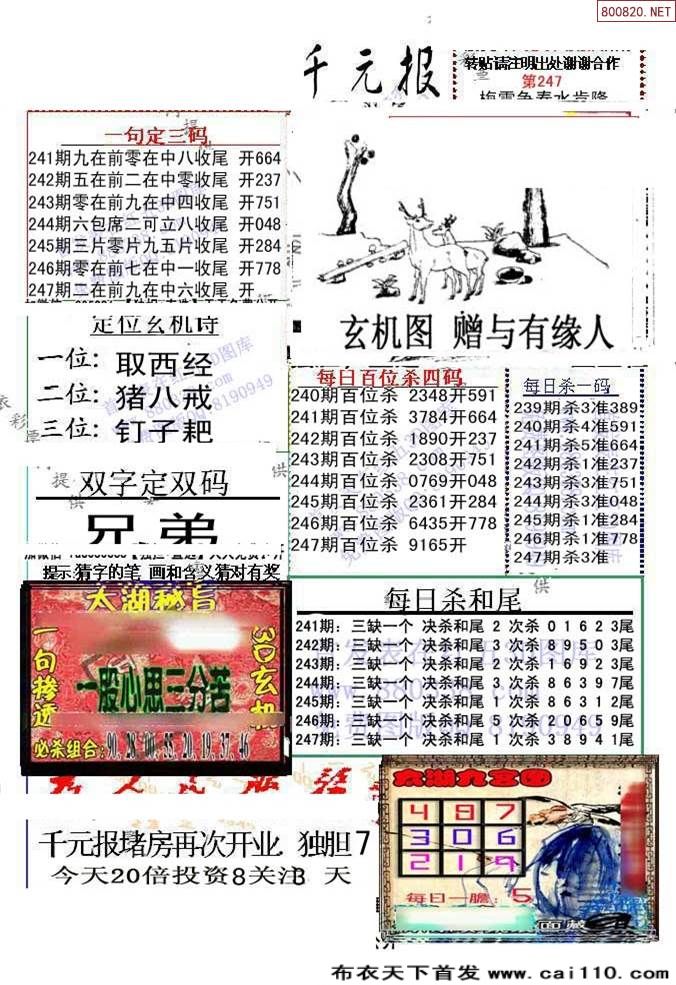 800820.NET
千元报
转贴请注明出处谢谢合作
第247
一句定三码
241期九在前零在中八收尾 开664
242期五在前二在中零收尾 开237
243期零在前九在中四收尾 开751
244期六包席二可立八收尾 开048
245期三片零片九五片收尾 开284
246期零在前七在中一收尾 开778
247期二在前九在中六收尾 开
玄机图 赠与有缘人
定位玄机诗
一位: 取西经
二位: 猪八戒
三位: 钉子耙
每日百位杀四码
240期百位杀 2348开591
241期百位杀 3784开664
242期百位杀 1890开237
243期百位杀 2308开751
244期百位杀 0769开048
245期百位杀 2361开284
246期百位杀 6435开778
247期百位杀 9165开
每日杀一码
239期杀3准389
240期杀4准591
241期杀5准664
242期杀1准237
243期杀3准751
244期杀3准048
245期杀1准284
246期杀1准778
247期杀3准
双字定双码
兄弟
提示:猜字的笔 画和含义猜对有奖
太湖秘旨
一句掺透
3D玄机
一股心思三分苦
必杀组合: 90,28,00,55,20,19,37,46
每日杀和尾
241期: 三缺一个 决杀和尾 2 次杀 0 1 6 2 3尾
242期: 三缺一个 决杀和尾 3 次杀 8 9 5 0 3尾
243期: 三缺一个 决杀和尾 2 次杀 1 6 9 2 3尾
244期: 三缺一个 决杀和尾 3 次杀 8 6 3 9 7尾
245期: 三缺一个 决杀和尾 1 次杀 8 6 3 1 2尾
246期: 三缺一个 决杀和尾 5 次杀 2 0 6 5 9尾
247期: 三缺一个 决杀和尾 1 次杀 3 8 9 4 1尾
千元报堵房再次开业 独胆7
今天20倍投资8关注3 天
太湖九宫图
4 8 7
3 0 6
2 1 9
每日一胆: 5
布衣天下首发 www.cai110.com